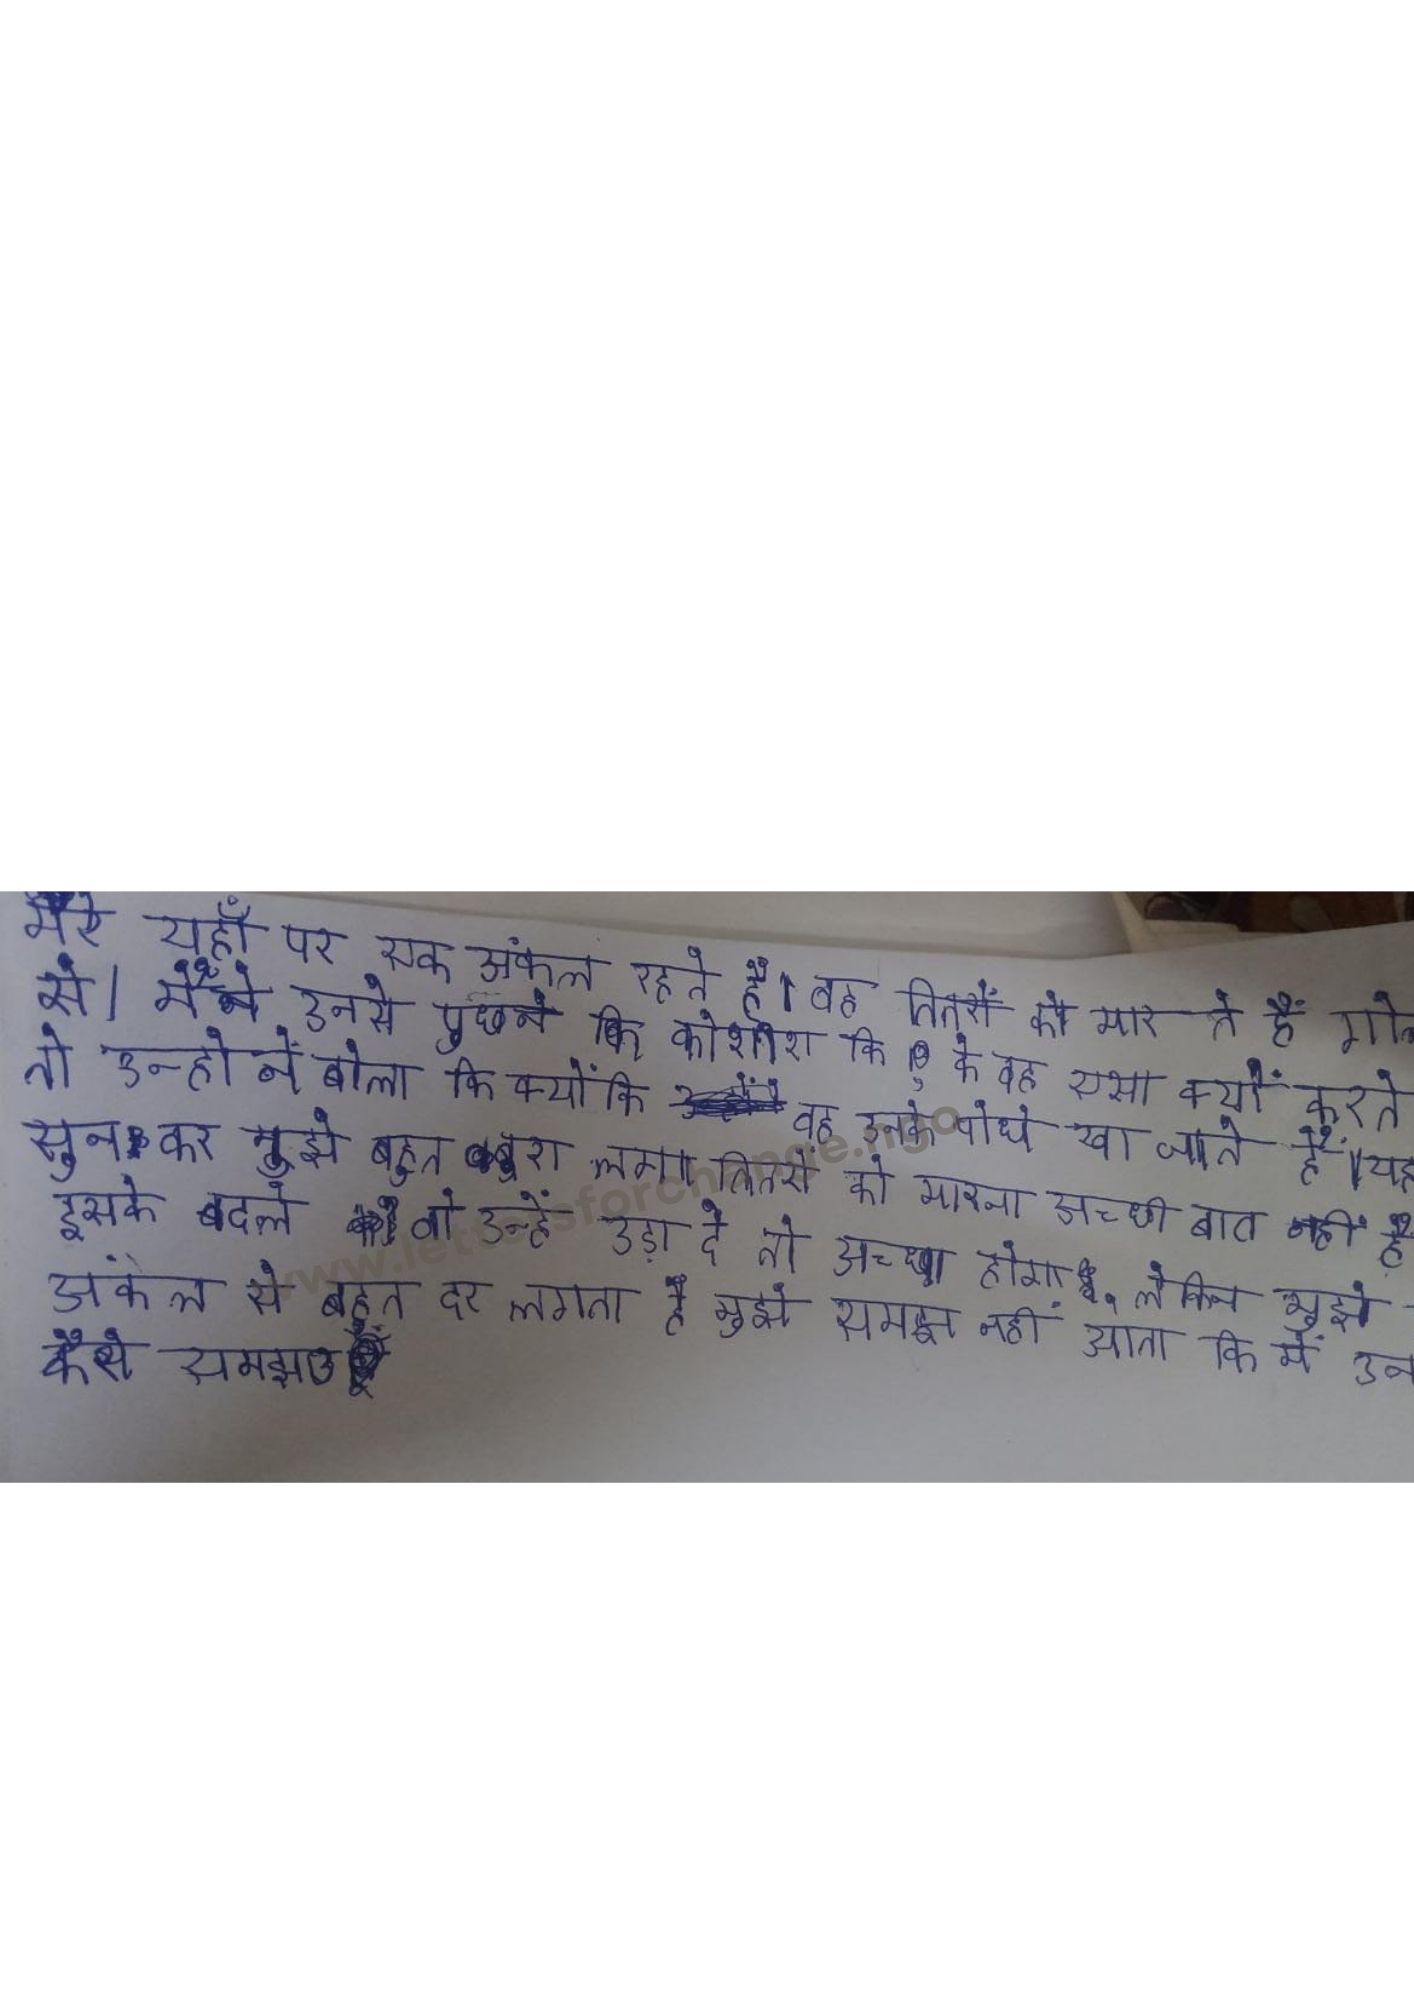 मेरे यहाँ पर एक अंकल रहते हैं। वह तितरों को मार ते हैं
से। मैंने उनसे पुछने कि कोशीश कि के वह एसा क्यों करते
तो उन्होनें बोला कि क्योंकि वह इनके पोधे खा जाते हैं। यह
सुन कर मुझे बहुत बुरा लगा तितरों को मारना अच्छी बात नहीं है
इसके बदले वो उन्हें उड़ा दे तो अच्छा होगा लेकिन मुझे
अंकल से बहुत दर लगता है मुझे समझ नहीं आता कि में
कैसे समझाउ
www.lettersforchange.ngo